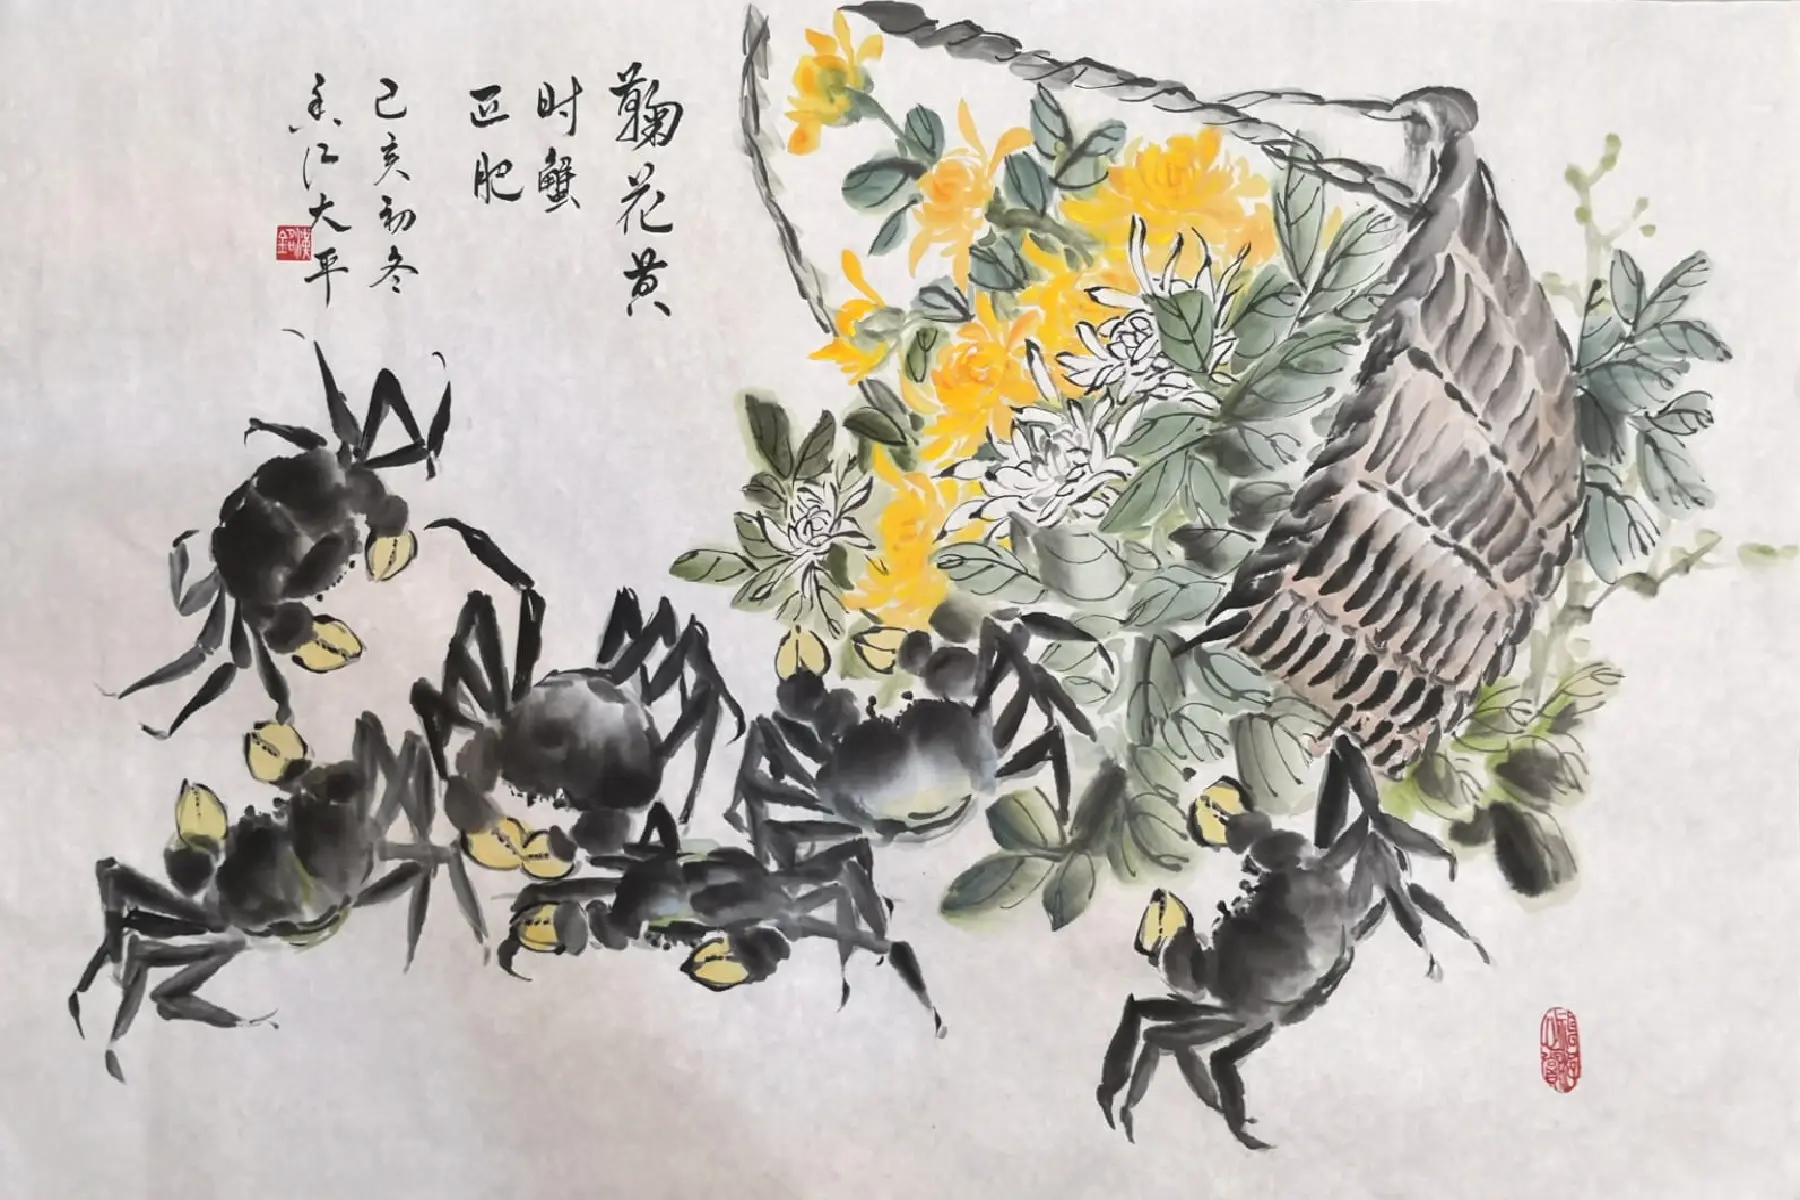 鞠花黄
时蟹
正肥
己亥初冬
江大平